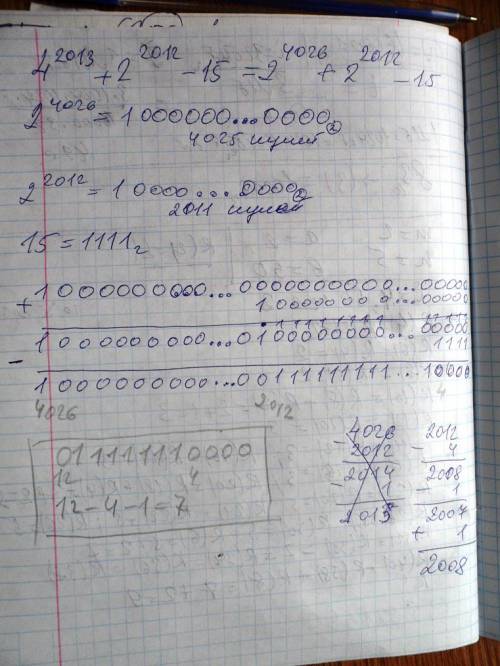 4^2013 + 2^2012 - 15 = 2^4026 + 2^2012 - 15
2^4026 = 1 000000...0000₂
4025 нулей
2^2012 = 1 0000...0000₂
2011 нулей
15 = 1111₂
+ 1000000000...0000000000...00000
10000000 0...00000
- 1 000000000...0100000000...00000
1111
1 000000000...0011111111...10000
4026 2012 4
011111110000
12 4
12-4-1=7
4026
- 2012
2014
- 1
2013
2012
- 4
2008
- 1
2007
+ 1
2008